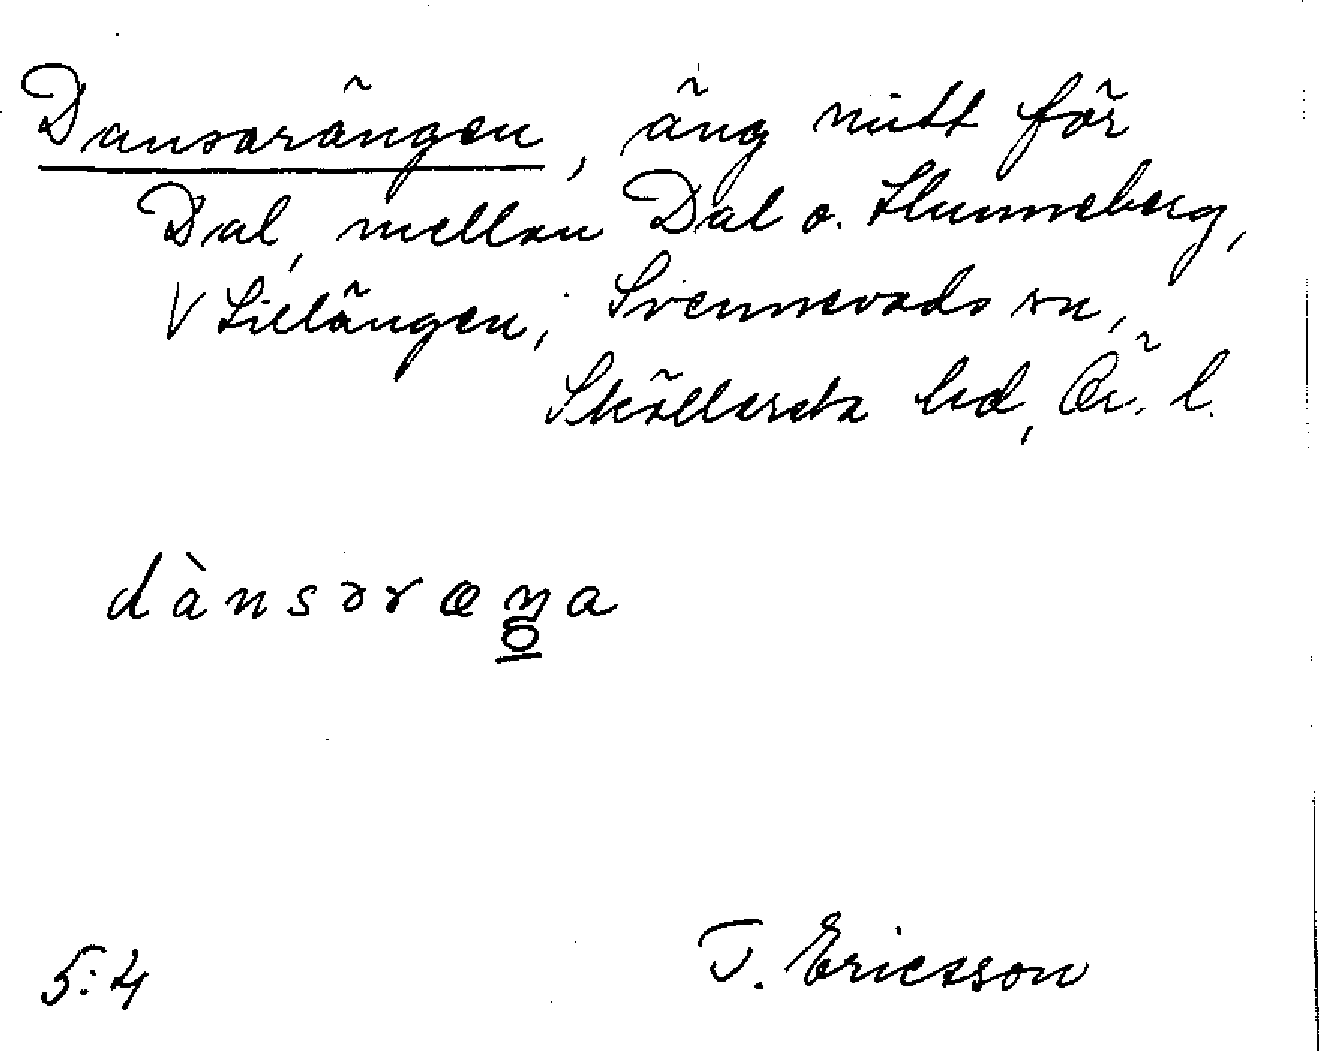 Dansarängen, äng mitt för
Dal, mellan Dal o. Hunneberg,
V Lillängen, Svennevads sn,
Sköllersta hd, Ör. l.
dànsəræŋa
5:4
T. Ericsson